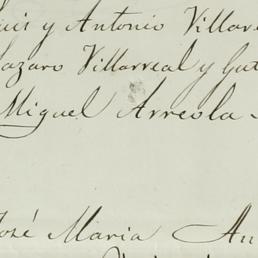 Luis y Antonio Villar
Lazaro Villarreal y Gut
Miguel Arreola
José Maria Au